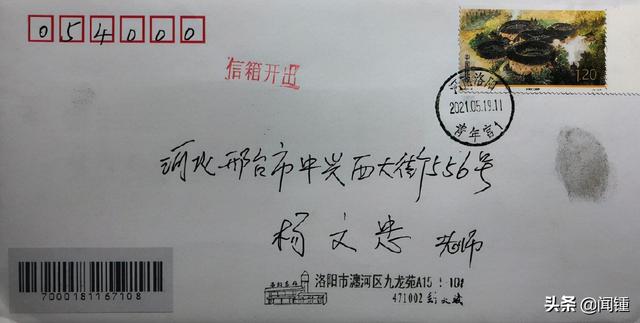 054000
信箱开出
1.20
河南洛阳
2021.05.19.11
河北邢台市中兴西大街556号
杨文忠 老师
洛阳市瀍河区九龙苑A15
471002
7000181167108
头条 @闻锺